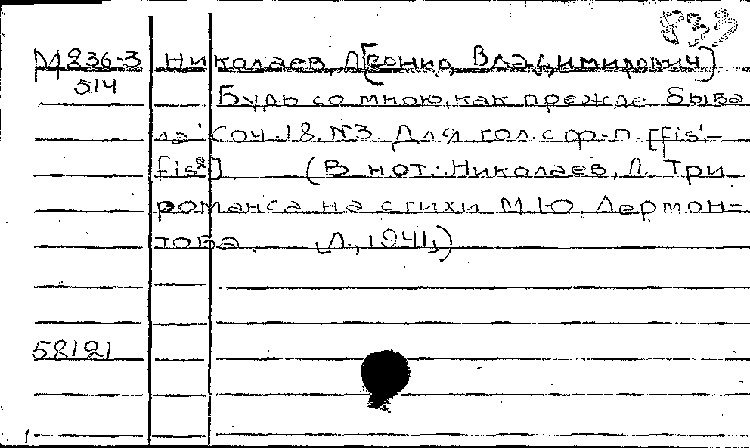 833
М236-3 Николаев, Л[еонид Владимирович]
514 Будь со мною, как прежде быва
ла. Соч. 18. №3. Для гол. с ф-п. [fis¹-
fis²] (В нот.: Николаев, Л. Три
романса на стихи М.Ю. Лермон-
това. Л., 1941,)
58121